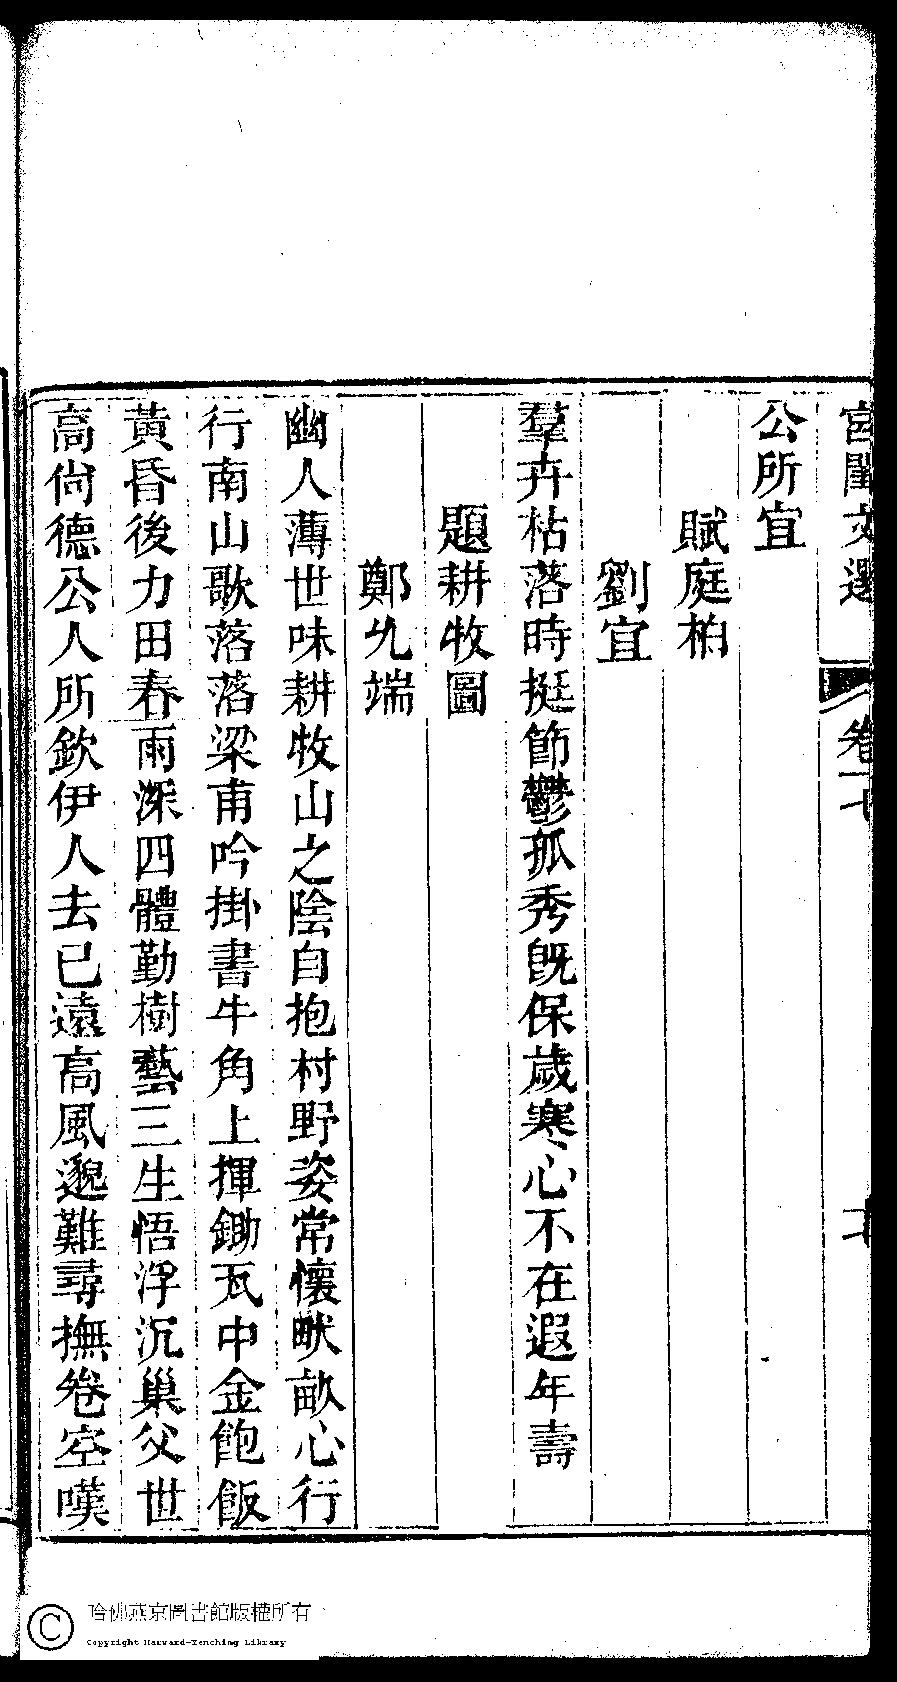 宮閨文選
卷十
十
公所宜
賦庭柏
劉宜
羣卉枯落時挺節鬱孤秀旣保歲寒心不在遐年壽
題耕牧圖
鄭允端
幽人薄世味耕牧山之陰自抱村野姿常懷畎畝心行
行南山歌落落梁甫吟掛書牛角上揮鋤瓦中金飽飯
黃昏後力田春雨深四體勤樹藝三生悟浮沉巢父世
高尙德公人所欽伊人去已遠高風邈難尋撫卷空嘆
哈佛燕京圖書館版權所有
Copyright Harvard-Yenching Library